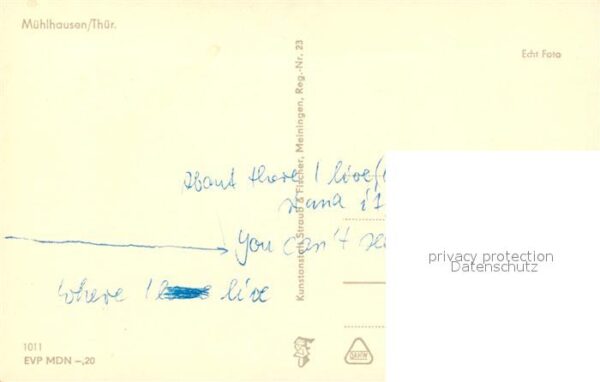 Mühlhausen/Thür.
Echt Foto
Kunstanstalt Straub & Fischer, Meiningen, Reg.-Nr. 23
About there I live (
you can't
where I live
privacy protection
Datenschutz
1011
EVP MDN -,20